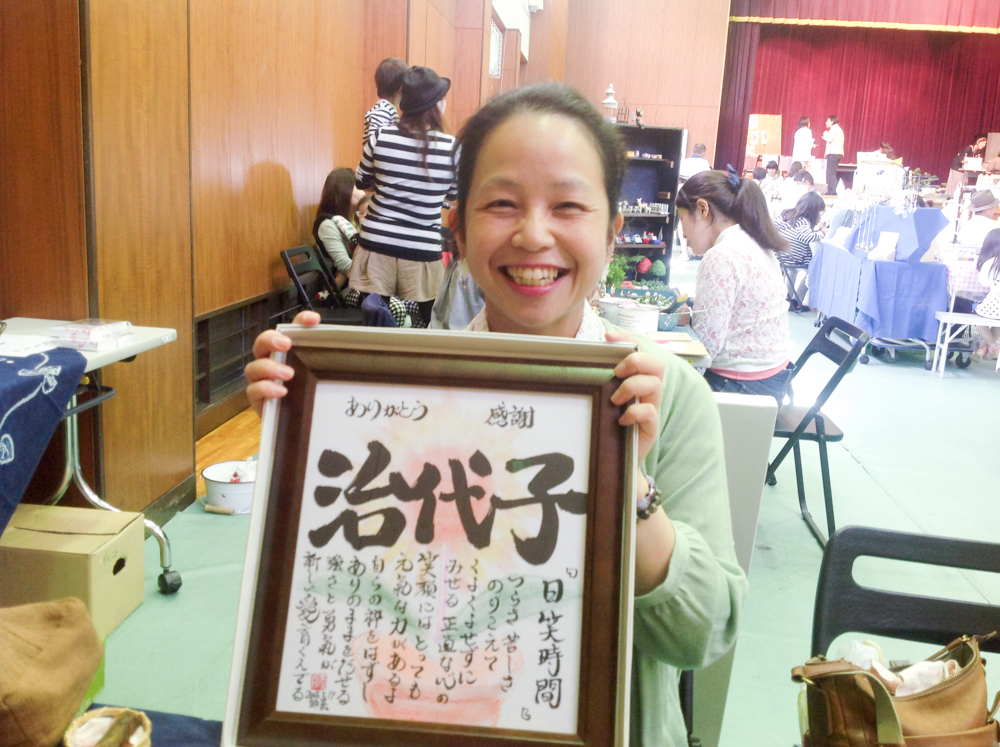 ありがとう 感謝
治代子
『日笑時間』
つらさ 苦しさ
のりこえて
くよくよせずに
みせる 正直な心の
笑顔にはとっても
元氣な力があるよ
自らの枠をはずし
ありのままをだせる
強さと勇氣が
新しい愛育くんでる